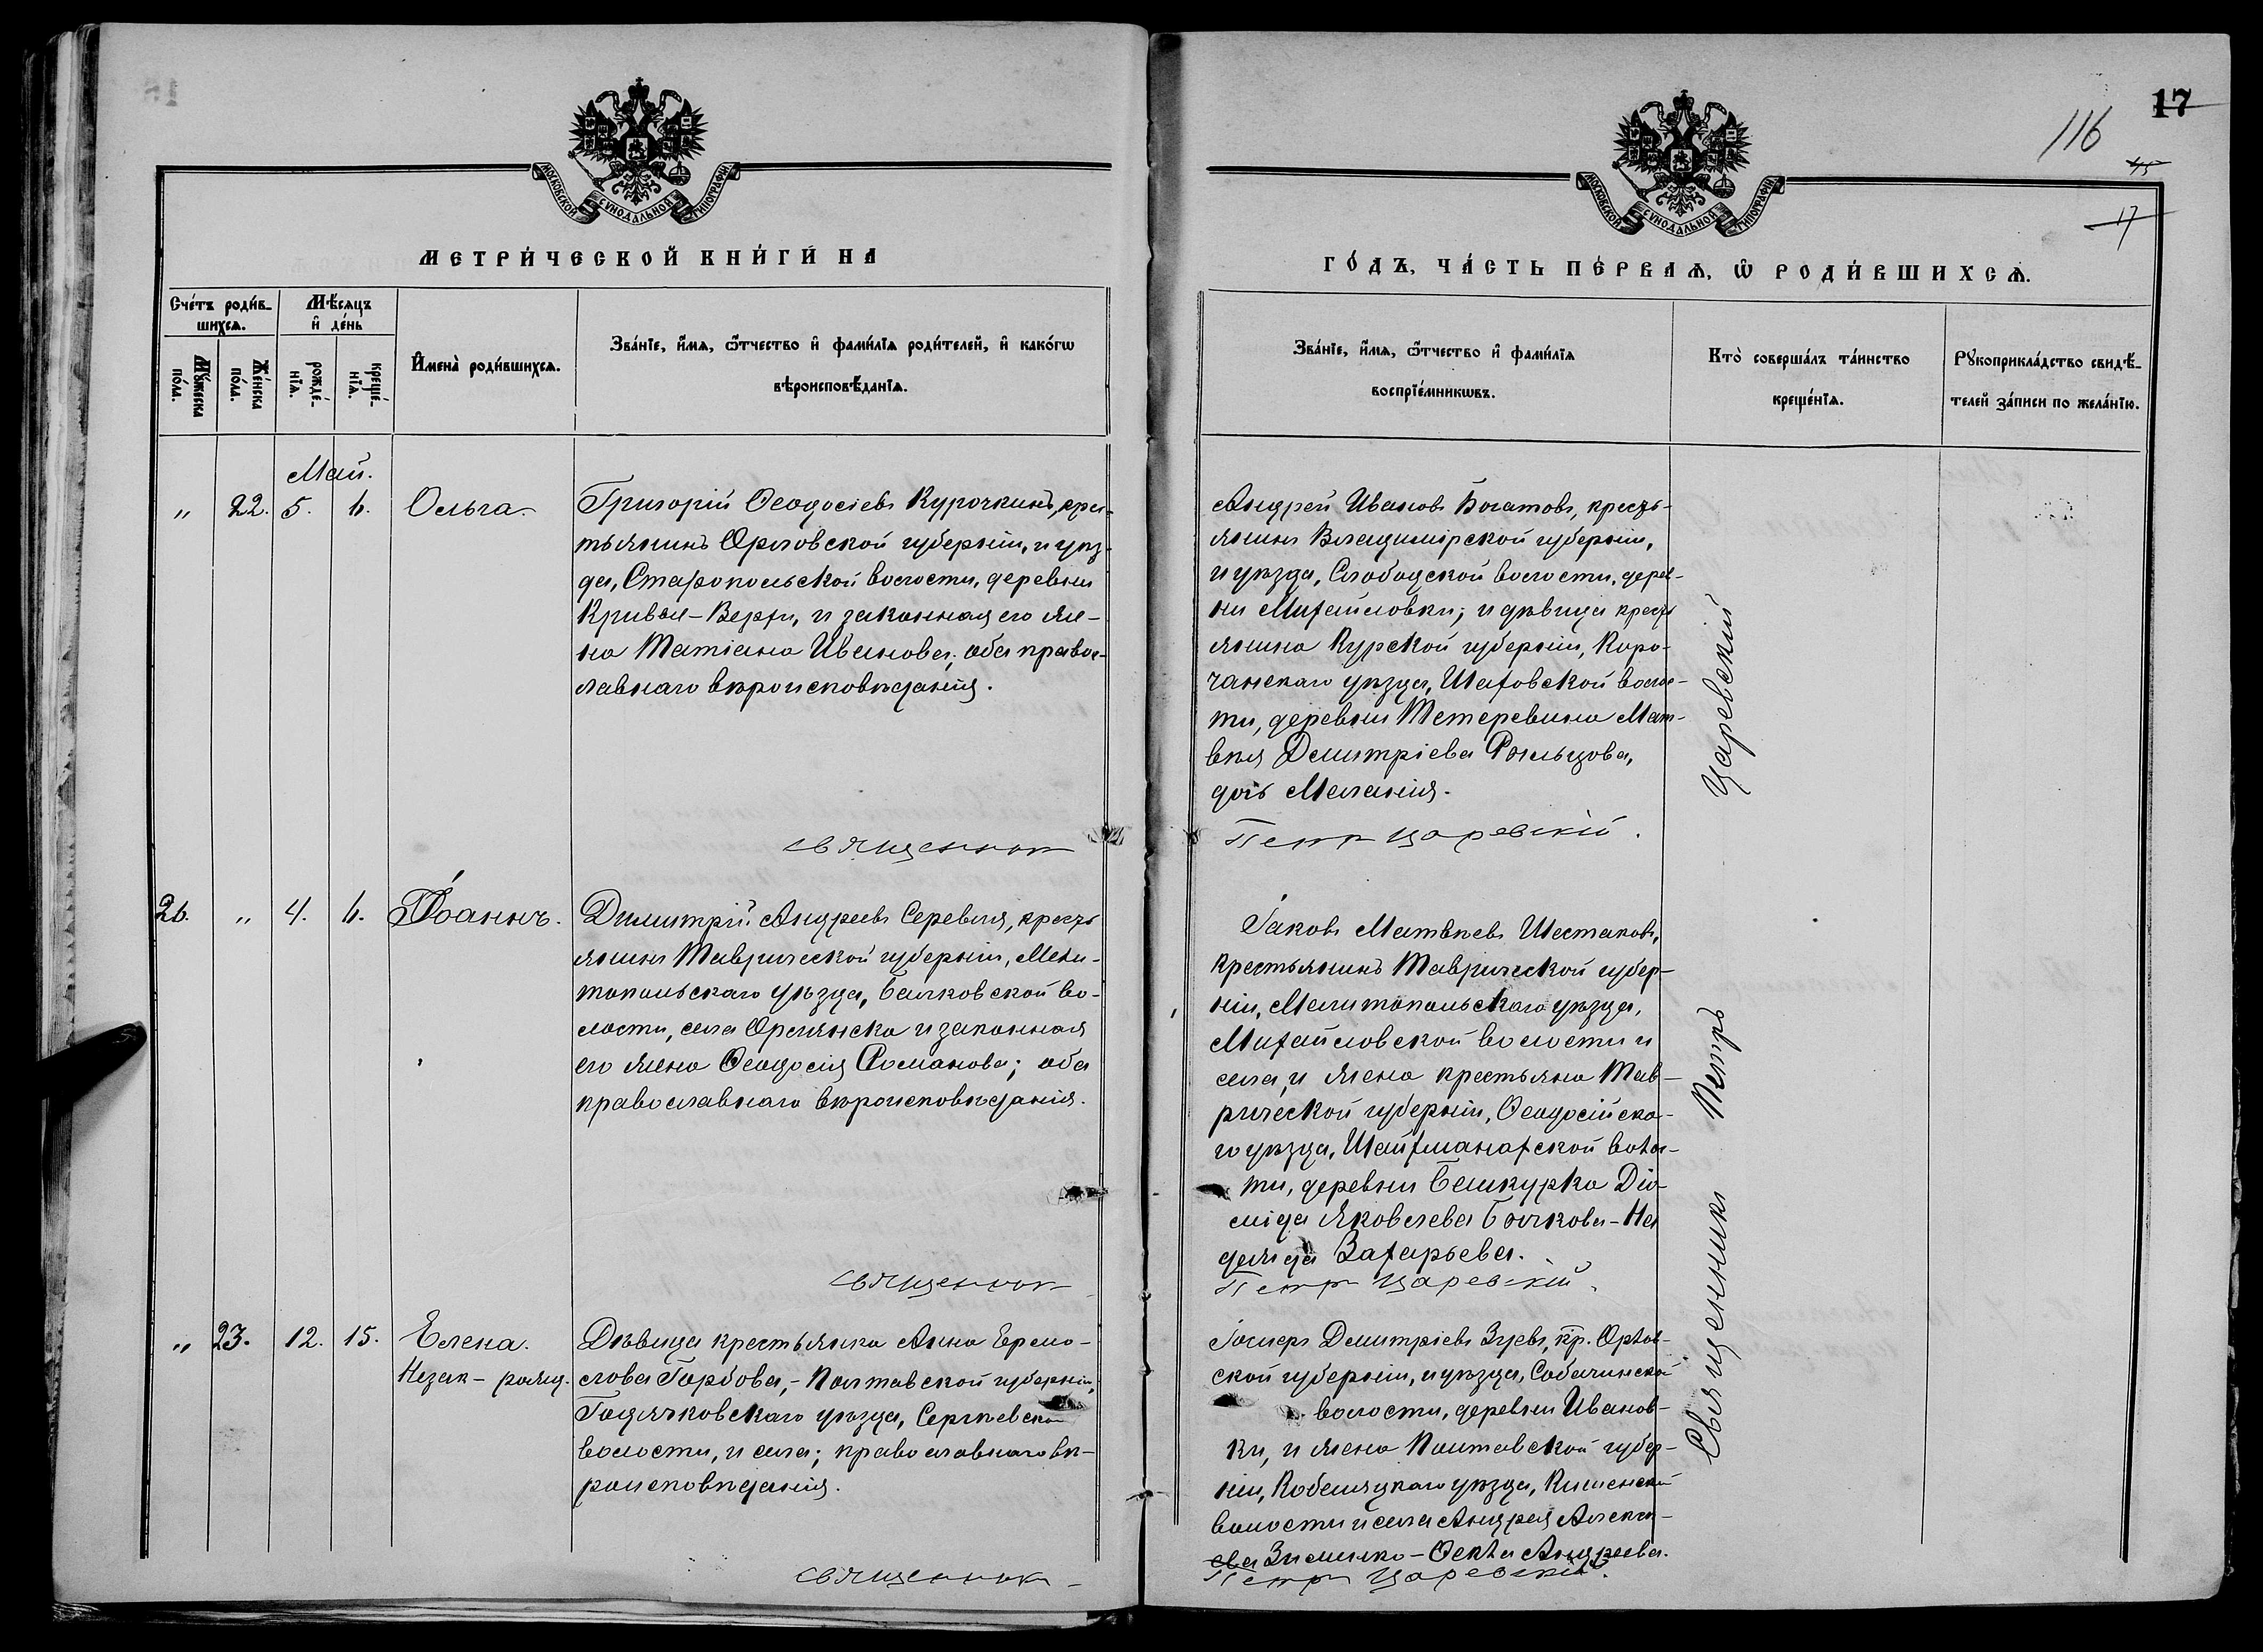 МОСКОВСКОЙ СУНОДАЛЬНОЙ ТИПОГРАФІИ
МЕТРИ́ЧЕСКОЙ КНИ́ГИ НА
Сче́тъ роди́в-
шихсѧ.
Мѣ́сѧцъ
и҆ де́нь
Мꙋ́жеска
по́ла.
Же́нска
по́ла.
рожде́-
нїѧ.
креще́-
нїѧ.
И҆мена̀ роди́вшихсѧ.
Зва́нїе, и҆́мѧ, ѻ҆́тчество и҆ фами́лїѧ роди́телей, и҆ како́гѡ
вѣроисповѣ́данїѧ.
Май.
" 22. 5. 6. Ольга.
Григорій Ѳеодосіевъ Курочкинъ, крес-
тьянинъ Орловской губерніи, и уѣз-
да, Стафопольской волости, деревни
Кривыя-Верхи, и законная его же-
на Татіана Иванова; оба правос-
лавнаго вѣроисповѣданія.
священник
26. " 4. 6. Іоаннъ.
Димитрій Андреевъ Серевея, кресть
янинъ Таврической губерніи, Мели-
топольскаго уѣзда, Балковской во-
лости, села Орлянска и законная
его жена Ѳеодосія Романова; оба
православнаго вѣроисповѣданія.
священник
" 23. 12. 15. Елена.
Незак-рожд.
Дѣвица крестьянка Анна Ермо-
лова Горбова,- Полтавской губерніи,
Гадячковскаго уѣзда, Сергѣевской
волости, и села; православнаго вѣ-
роисповѣданія.
священник
17
116
45
17
МОСКОВСКОЙ СУНОДАЛЬНОЙ ТИПОГРАФІИ
ГО́ДЪ, ЧА́СТЬ ПЕ́РВАѦ, Ѡ҆ РОДИ́ВШИХСѦ.
Зва́нїе, и҆́мѧ, ѻ҆́тчество и҆ фами́лїѧ
воспрїе́мникѡвъ.
Кто̀ соверша́лъ та́инство
креще́нїѧ.
Рꙋкоприкла́дство свидѣ́-
телей за́писи по жела́нїю.
Андрей Ивановъ Богатовъ, кресть-
янинъ Владимірской губерніи,
и уѣзда, Слободской волости, дерев-
ни Михайловки; и дѣвица кресть
янина Курской губерніи, Коро-
чанскаго уѣзда, Шаховской волос-
ти, деревни Тетеревина Мат-
вѣя Демитріева Рыльцова,
дочь Меланія.
Петр Царевскій.
Іаковъ Матвѣевъ Шестаковъ,
крестьянинъ Таврической губер-
ніи, Мелитопольскаго уѣзда,
Михайловской волости и
села, и жена крестьяна Тав-
рической губерніи, Ѳеодосійска-
го уѣзда, Шайхманахской волос-
ти, деревни Башкурка Діо-
мида Яковлева Бычкова-На
дежда Захарьева.
Петр Царевскій.
Демитріевъ Зуевъ, кр. Орлов-
ской губерніи, и уѣзда, Собакинской
волости, деревни Иванов-
ки, и жена Полтавской губер-
ніи, Кобеляцкаго уѣзда, Кишенской
волости и села Андрея Алексѣ-
ева Зименко-Ѳекла Андреева.
Петр Царевскій.
Священникъ Петръ Царевскій